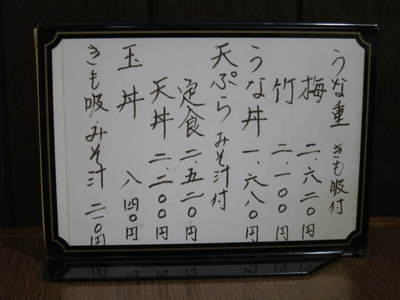 うな重 きも吸付
梅 二.六二〇円
竹 二.一〇〇円
うな丼 一.六八〇円
天ぷら みそ汁付
定食 二.五二〇円
天丼 二.一〇〇円
玉丼 八四〇円
きも吸 みそ汁 二一〇円